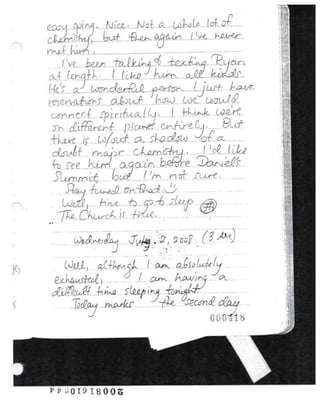 easy going. Nice. Not a whole lot of
chemistry, but then again I've never
met him.
I've been talking & texting Ryan
at length. I like him all kinds.
He's a wonderful person. I just have
reservations about how we would
connect spiritually. I think we're
on different planet entirely. But
there is w/out a shadow of a
doubt major chemistry. I'd like
to see him again before Daniel's
Summit but I'm not sure.
Stay tuned on that
Well, time to go to sleep
The Church is true.
Wednesday July 2, 2008 (3 AM)
Well, although I am absolutely
exhausted, I am having a
difficult time sleeping tonight.
Today marks the second day
000418